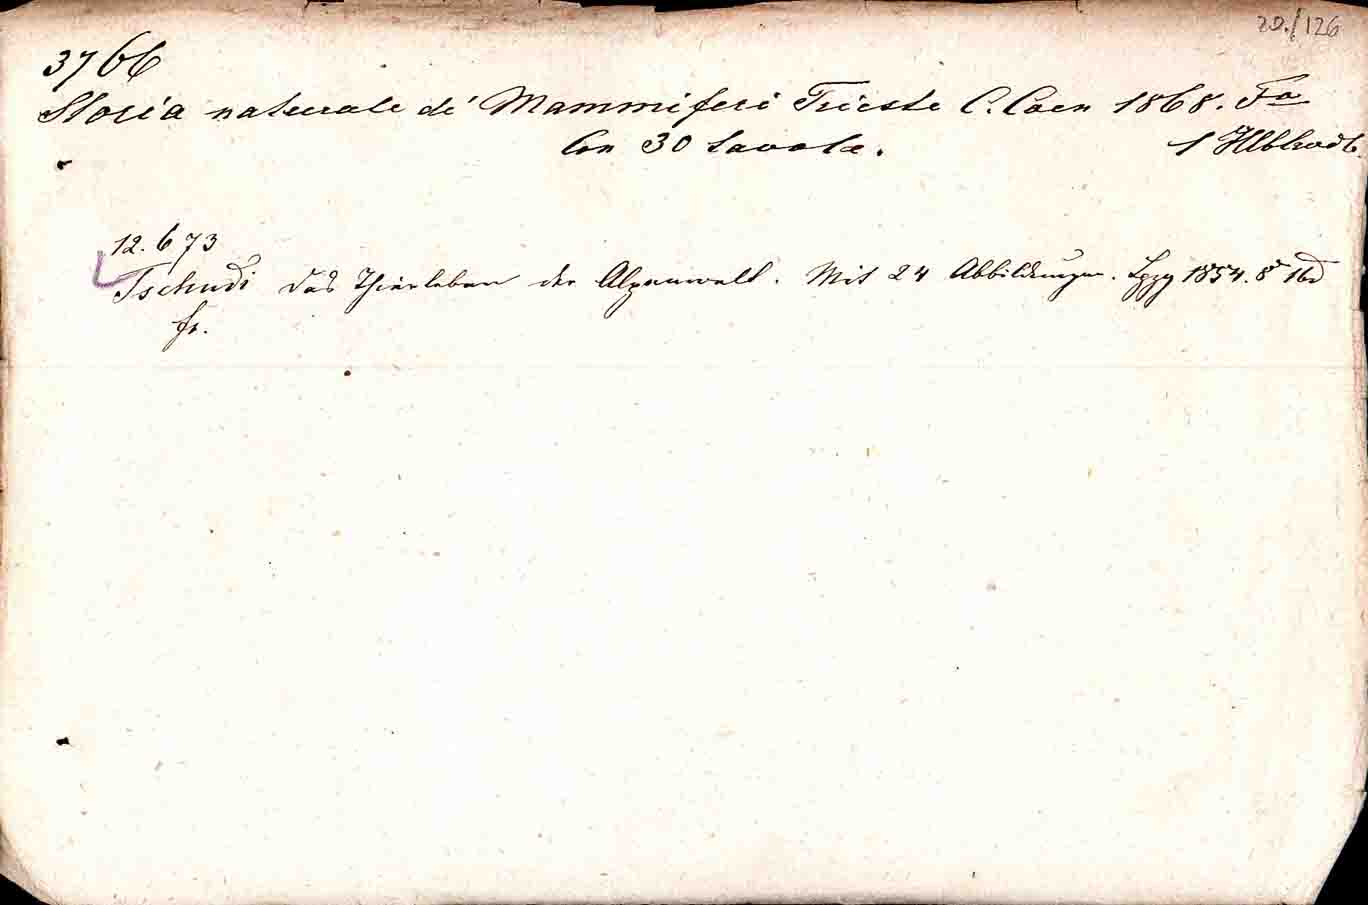 20./126
3766
Storia naturale de' Mammiferi Trieste C. Coen 1868. Fo
Con 30 tavole. 1 Hlblwdb.
12.673
Tschudi das Thierleben der Alpenwelt. Mit 24 Abbildungen. Lpzg 1854. 8°
fr.